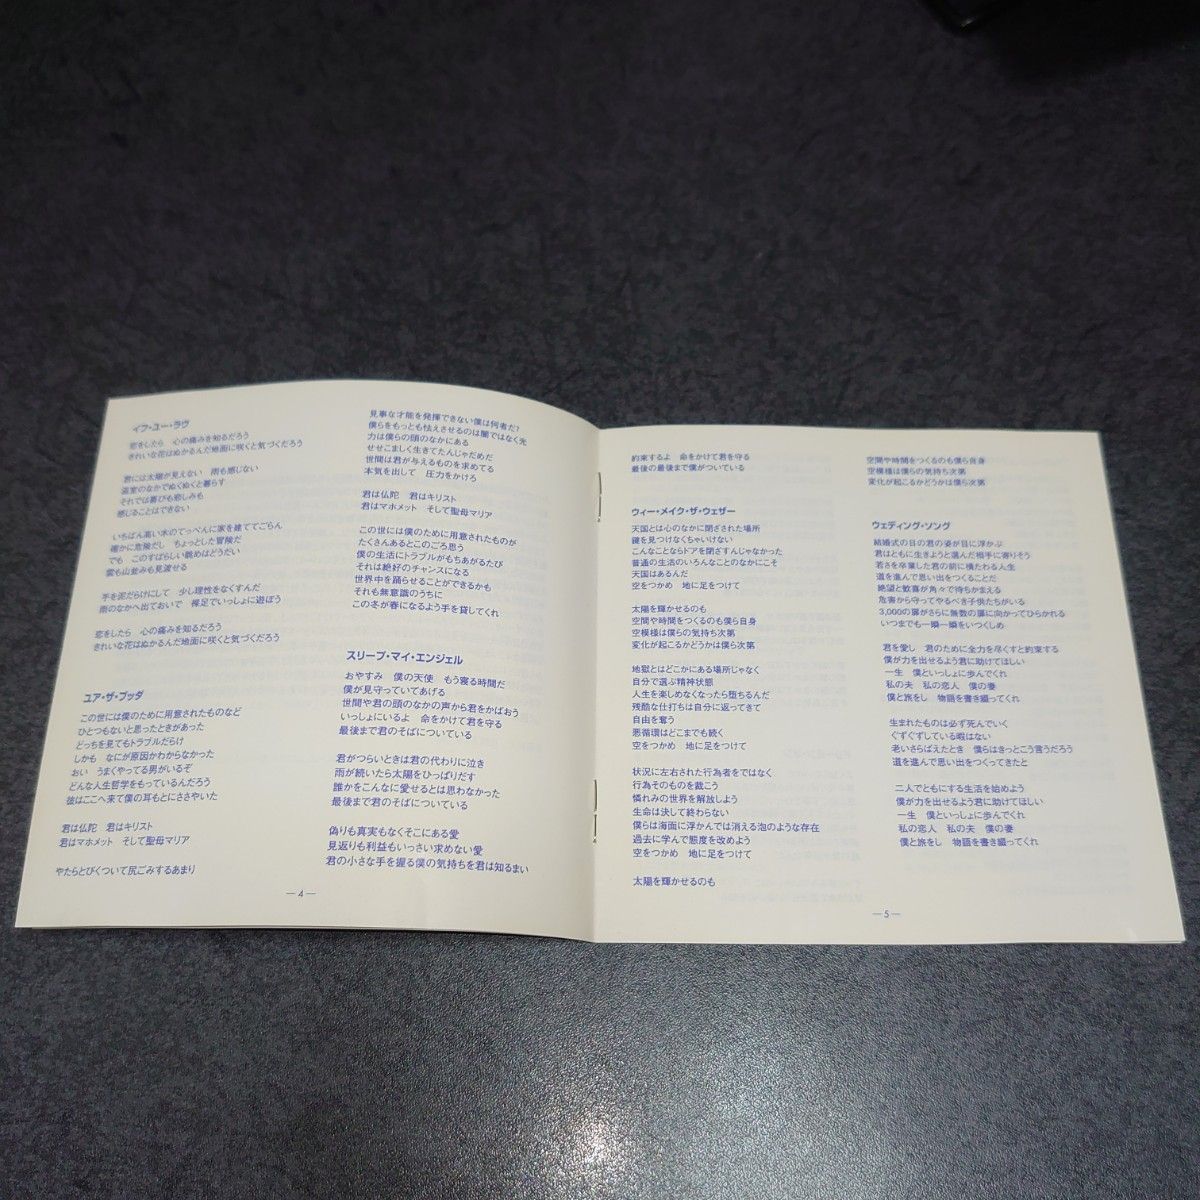 イフ・ユー・ラヴ
恋をしたら　心の痛みを知るだろう
きれいな花はぬかるんだ地面に咲くと気づくだろう
君には太陽が見えない　雨も感じない
温室のなかでぬくぬくと暮らす
それでは喜びも悲しみも
感じることはできない
いちばん高い木のてっぺんに家を建ててごらん
確かに危険だし　ちょっとした冒険だ
でも　このすばらしい眺めはどうだい
雲も山並みも見渡せる
手を泥だらけにして　少し理性をなくすんだ
雨のなかへ出ておいで　裸足でいっしょに遊ぼう
恋をしたら　心の痛みを知るだろう
きれいな花はぬかるんだ地面に咲くと気づくだろう
ユア・ザ・ブッダ
この世には僕のために用意されたものなど
ひとつもないと思ったときがあった
どっちを見てもトラブルだらけ
しかも　なにが原因かわからなかった
おい　うまくやってる男がいるぞ
どんな人生哲学をもっているんだろう
彼はここへ来て僕の耳もとにささやいた
君は仏陀　君はキリスト
君はマホメット　そして聖母マリア
やたらとびくついて尻ごみするあまり
見事な才能を発揮できない僕は何者だ?
僕らをもっとも怯えさせるのは闇ではなく光
力は僕らの頭のなかにある
せせこましく生きてたんじゃだめだ
世間は君が与えるものを求めてる
本気を出して　圧力をかけろ
君は仏陀　君はキリスト
君はマホメット　そして聖母マリア
この世には僕のために用意されたものが
たくさんあるとこのごろ思う
僕の生活にトラブルがもちあがるたび
それは絶好のチャンスになる
世界中を踊らせることができるかも
それも無意識のうちに
この冬が春になるよう手を貸してくれ
スリープ・マイ・エンジェル
おやすみ　僕の天使　もう寝る時間だ
僕が見守っていてあげる
世間や君の頭のなかの声から君をかばおう
いっしょにいるよ　命をかけて君を守る
最後まで君のそばについている
君がつらいときは君の代わりに泣き
雨が続いたら太陽をひっぱりだす
誰かをこんなに愛せるとは思わなかった
最後まで君のそばについている
偽りも真実もなくそこにある愛
見返りも利益もいっさい求めない愛
君の小さな手を握る僕の気持ちを君は知るまい
—4—
約束するよ　命をかけて君を守る
最後の最後まで僕がついている
ウィー・メイク・ザ・ウェザー
天国とは心のなかに閉ざされた場所
鍵を見つけなくちゃいけない
こんなことならドアを閉ざすんじゃなかった
普通の生活のいろんなことのなかにこそ
天国はあるんだ
空をつかめ　地に足をつけて
太陽を輝かせるのも
空間や時間をつくるのも僕ら自身
空模様は僕らの気持ち次第
変化が起こるかどうかは僕ら次第
地獄とはどこかにある場所じゃなく
自分で選ぶ精神状態
人生を楽しめなくなったら堕ちるんだ
残酷な仕打ちは自分に返ってきて
自由を奪う
悪循環はどこまでも続く
空をつかめ　地に足をつけて
状況に左右された行為者をではなく
行為そのものを裁こう
憐れみの世界を解放しよう
生命は決して終わらない
僕らは海面に浮かんでは消える泡のような存在
過去に学んで態度を改めよう
空をつかめ　地に足をつけて
太陽を輝かせるのも
空間や時間をつくるのも僕ら自身
空模様は僕らの気持ち次第
変化が起こるかどうかは僕ら次第
ウェディング・ソング
結婚式の日の君の姿が目に浮かぶ
君はともに生きようと選んだ相手に寄りそう
若さを卒業した君の前に横たわる人生
道を進んで思い出をつくることだ
絶望と歓喜が角々で待ちかまえる
危害から守ってやるべき子供たちがいる
3,000の扉がさらに無数の扉に向かってひらかれる
いつまでも一瞬一瞬をいつくしめ
君を愛し　君のために全力を尽くすと約束する
僕が力を出せるよう君に助けてほしい
一生　僕といっしょに歩んでくれ
私の夫　私の恋人　僕の妻
僕と旅をし　物語を書き綴ってくれ
生まれたものは必ず死んでいく
ぐずぐずしている暇はない
老いさらばえたとき　僕らはきっとこう言うだろう
道を進んで思い出をつくってきたと
二人でともにする生活を始めよう
僕が力を出せるよう君に助けてほしい
一生　僕といっしょに歩んでくれ
私の恋人　私の夫　僕の妻
僕と旅をし　物語を書き綴ってくれ
—5—